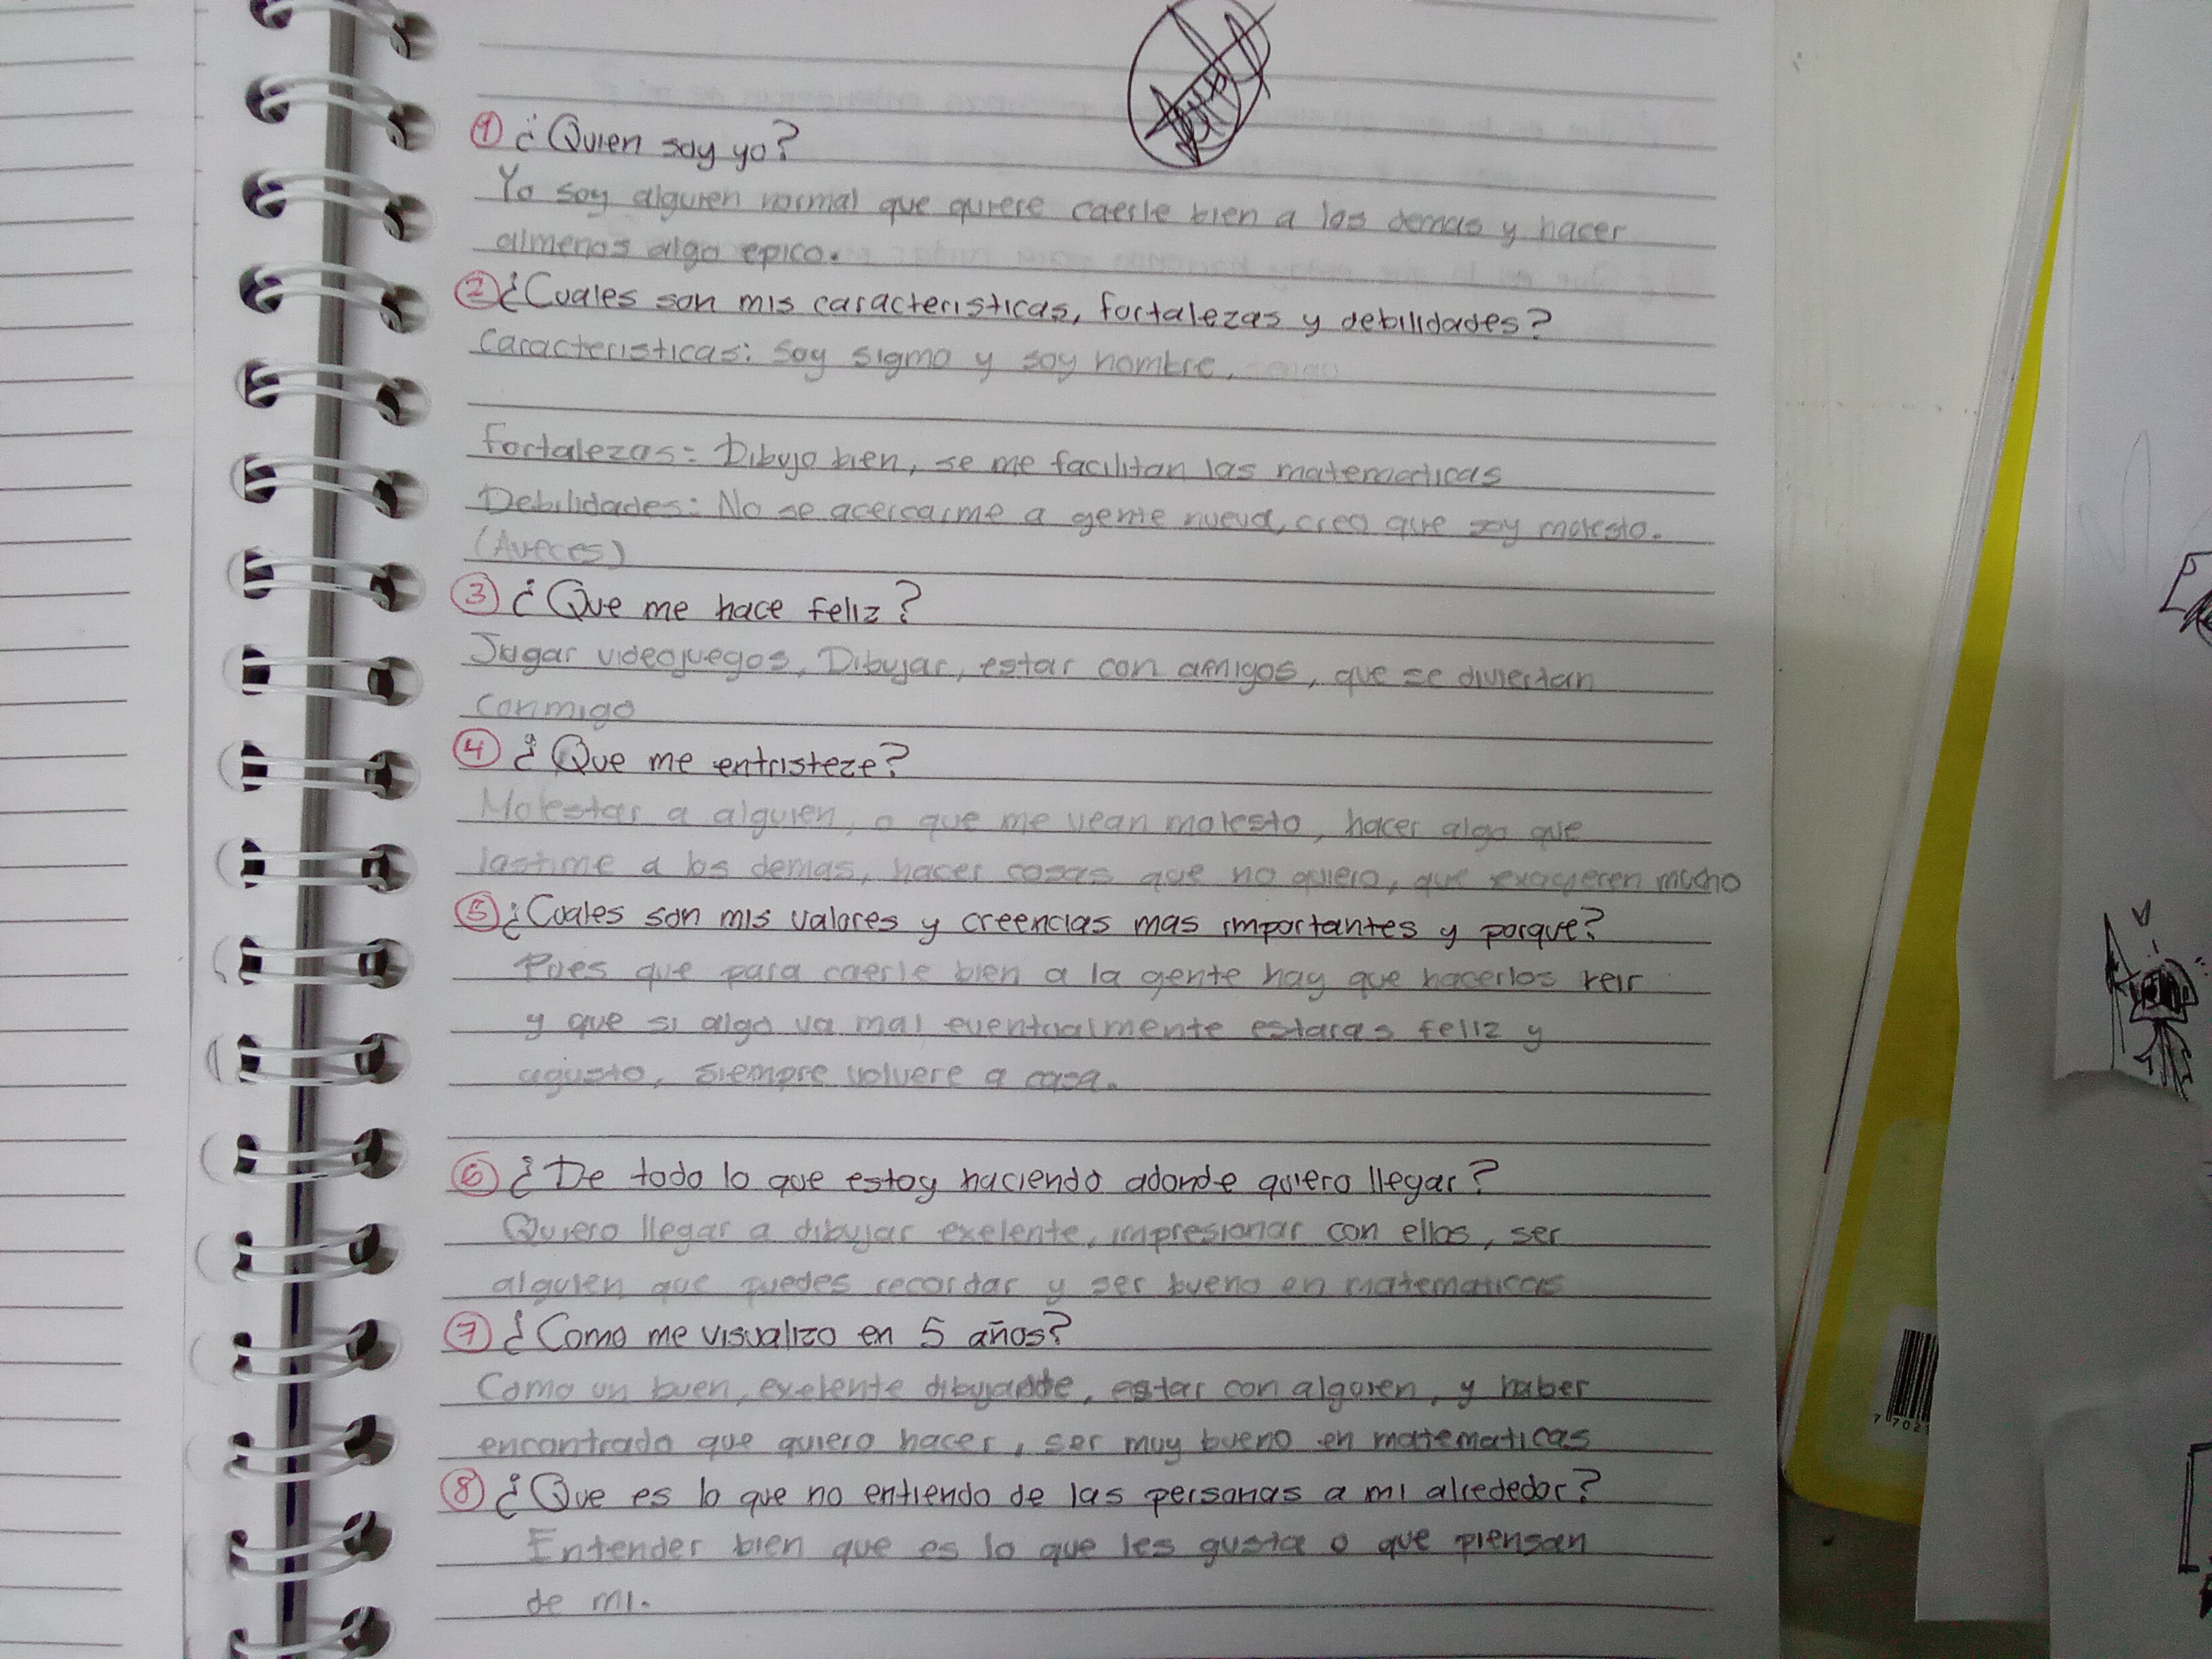 ① ¿Quien soy yo?
Yo soy alguien normal que quiere caerle bien a los demas y hacer
almenos algo epico.
② ¿Cuales son mis caracteristicas, fortalezas y debilidades?
Caracteristicas: Soy sigma y soy hombre,
Fortalezas: Dibujo bien, se me facilitan las matematicas
Debilidades: No se acercarme a gente nueva, creo que soy molesto.
(Aveces)
③ ¿Que me hace feliz?
Jugar videojuegos, Dibujar, estar con amigos, que se diviertan
conmigo
④ ¿Que me entristeze?
Molestar a alguien, o que me vean molesto, hacer algo que
lastime a los demas, hacer cosas que no quiero, que exageren mucho
⑤ ¿Cuales son mis valores y creencias mas importantes y porque?
Pues que para caerle bien a la gente hay que hacerlos reir
y que si algo va mal eventualmente estaras feliz y
agusto, siempre volvere a casa.
⑥ ¿De todo lo que estoy haciendo adonde quiero llegar?
Quiero llegar a dibujar exelente, impresionar con ellos, ser
alguien que puedes recordar y ser bueno en matematicas
⑦ ¿Como me visualizo en 5 años?
Como un buen, exelente, estar con alguien, y haber
encontrado que quiero hacer, ser muy bueno en matematicas
⑧ ¿Que es lo que no entiendo de las personas a mi alrededor?
Entender bien que es lo que les gusta o que piensan
de mi.